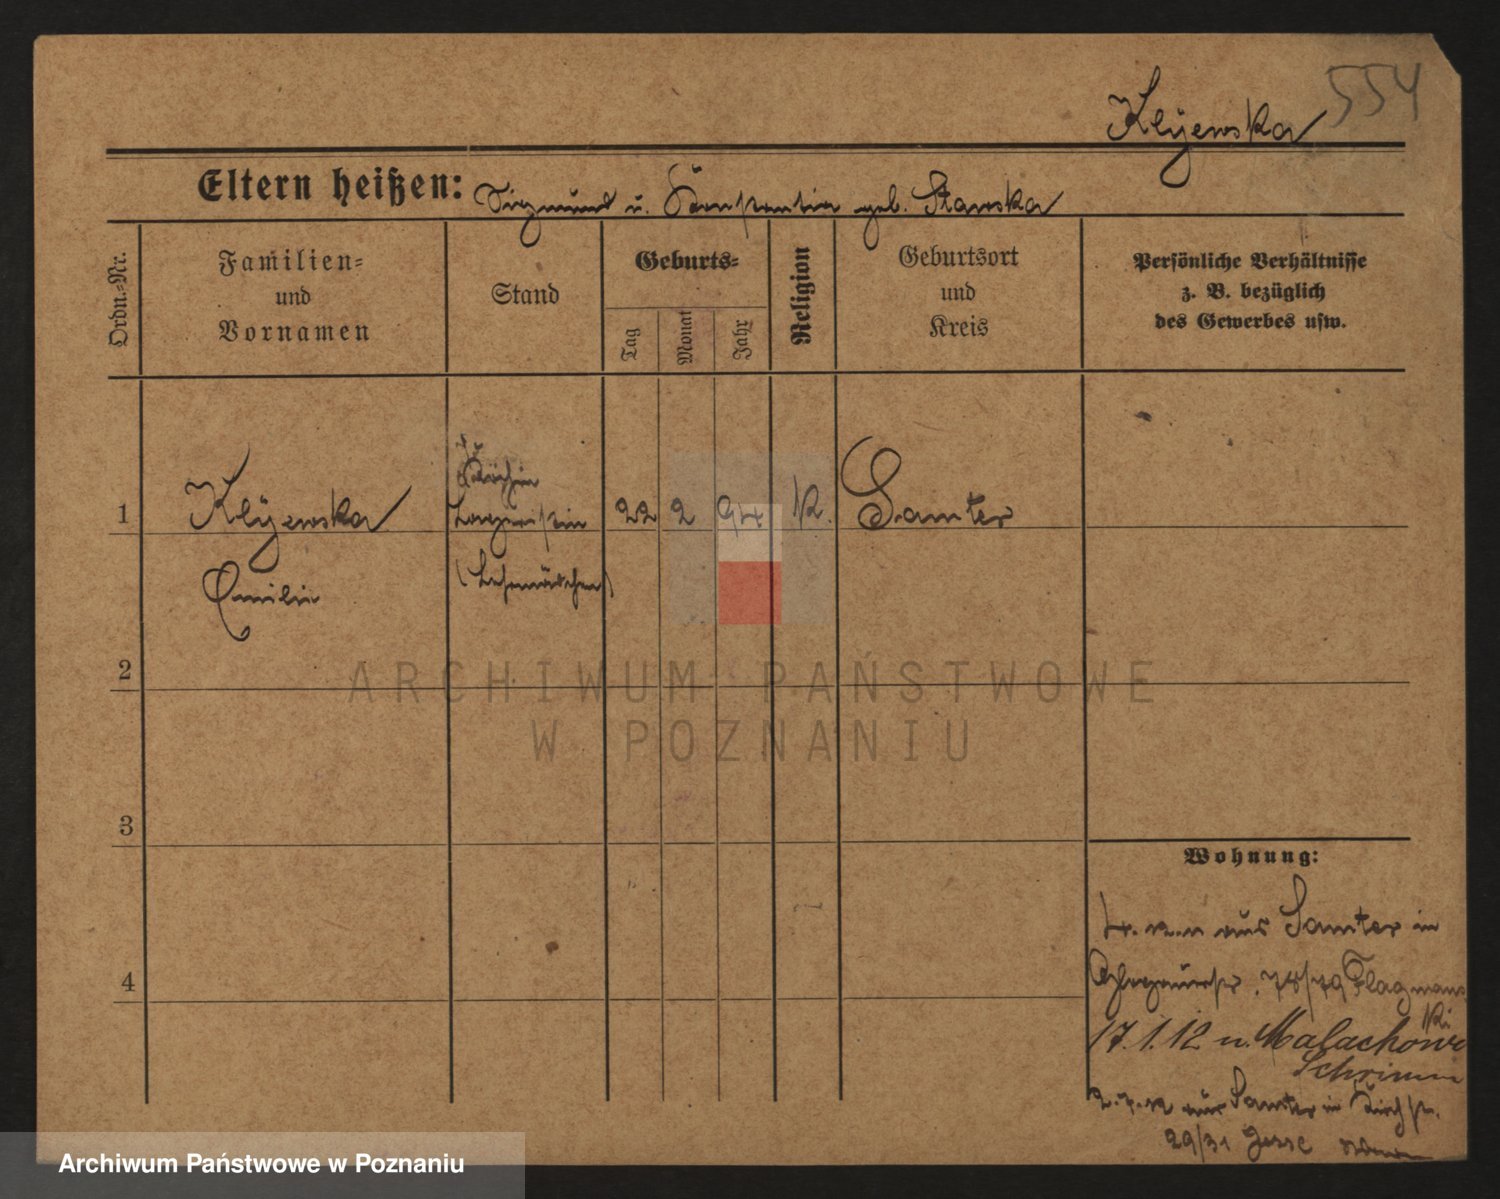 554
Klÿewska
Eltern heißen: Sigmund u. Konstantia geb. Stawska
Ordn.=Nr.
Familien=
und
Vornamen
Stand
Geburts=
Tag
Monat
Jahr
Religion
Geburtsort
und
Kreis
Persönliche Verhältnisse
z. B. bezüglich
des Gewerbes usw.
Köchin
1 Klÿewska 22 2 94 K. Samter
Emilie (Lehrmädchen)
2
3
4
Wohnung:
aus Samter in
78/79 Flagmans
ki
17.1.12 n. Malachowo
Schrimm
2.7.12 aus Samter in Kirchstr.
29/31
ARCHIWUM PAŃSTWOWE
W POZNANIU
Archiwum Państwowe w Poznaniu